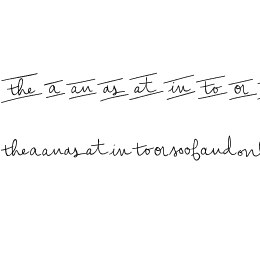 the a an as at in to or
theaanasatintoorsoofandon